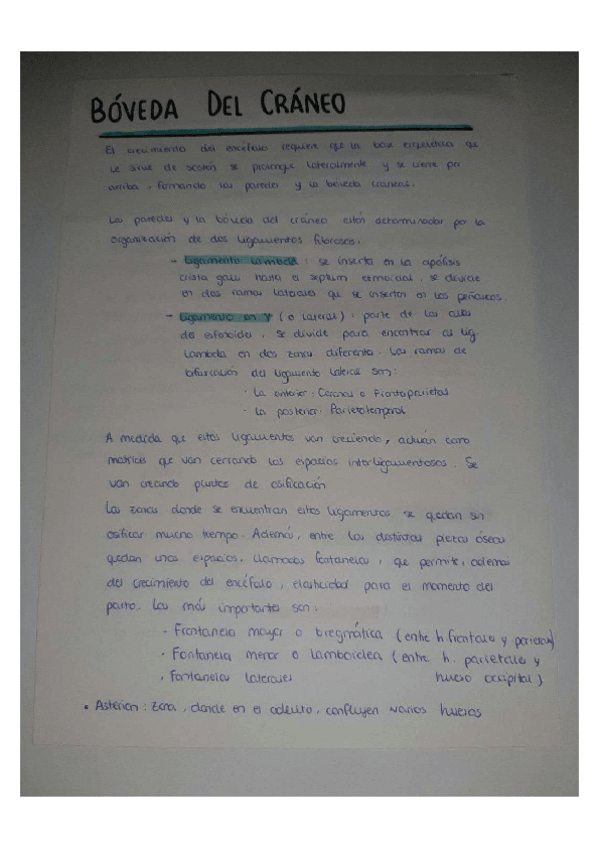 BÓVEDA DEL CRÁNEO
El crecimiento del encéfalo requiere que la base esquelética que
le sirve de sostén se prolongue lateralmente y se cierre por
arriba, formando las paredes y la bóveda craneal.
Las paredes y la bóveda del cráneo están determinadas por la
organización de dos ligamentos fibrosos:
- Ligamento lambda: se inserta en la apófisis
crista galli hasta a septum etmoidal. Se divide
en dos ramas laterales que se insertan en los peñascos.
- Ligamento en Y (o lateral): parte de las alas
del esfenoides, se divide para encontrar al lig.
lambda en dos zonas diferentes. Las ramas de
bifurcación del ligamento lateral son:
· La anterior: Coronal o Frontoparietal
· La posterior: Parietotemporal
A medida que estos ligamentos van creciendo, actúan como
matrices que van cerrando los espacios interligamentosos. Se
van creando puntos de osificación
Las zonas donde se encuentran estos ligamentos se quedan sin
osificar mucho tiempo. Además, entre las distintas piezas óseas
quedan unos espacios, llamados fontanelas, que permite, además
del crecimiento del encéfalo, elasticidad para el momento del
parto. Las más importantes son:
· Frontanela mayor o bregmática (entre h. frontales y parietales)
· Fontanela menor o lamboidea (entre h. parietales y
hueso occipital)
· Fontanelas laterales
• Asterion: Zona, donde en el adulto, confluyen varios huesos